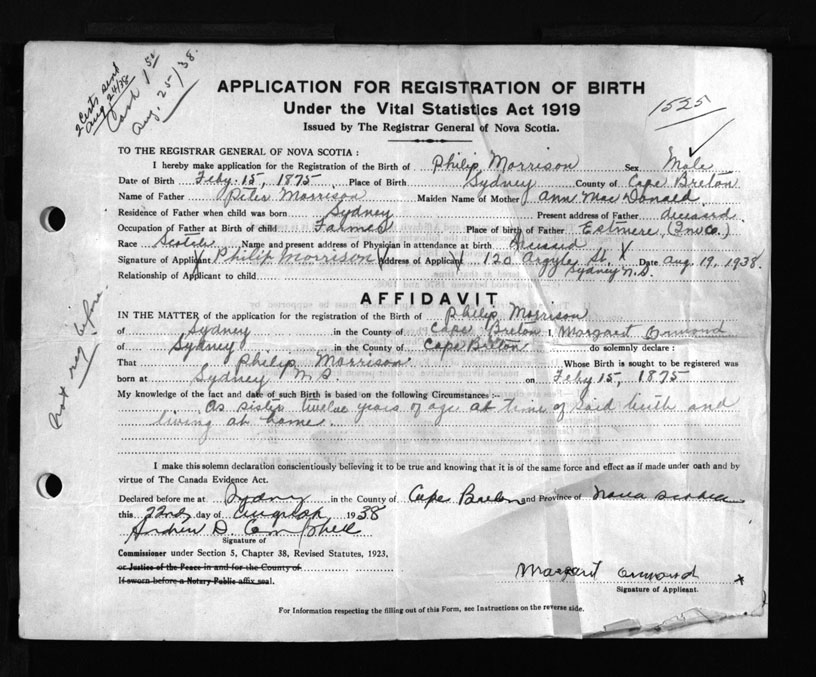 2 Certs send
Aug 24/38
Cash 1 50
Aug. 25/38.
APPLICATION FOR REGISTRATION OF BIRTH
Under the Vital Statistics Act 1919
Issued by The Registrar General of Nova Scotia.
1525
TO THE REGISTRAR GENERAL OF NOVA SCOTIA :
I hereby make application for the Registration of the Birth of Philip Morrison Sex Male
Date of Birth Feby. 15, 1875 Place of Birth Sydney County of Cape Breton
Name of Father Peter Morrison Maiden Name of Mother Ann MacDonald
Residence of Father when child was born Sydney Present address of Father deceased
Occupation of Father at Birth of child Farmer Place of birth of Father Estmere, (Inv Co.)
Race Scotch Name and present address of Physician in attendance at birth deceased
Signature of Applicant Philip Morrison Address of Applicant X 120 Argyle St. X Date Aug. 19, 1938.
Sydney N.S.
Relationship of Applicant to child
AFFIDAVIT
IN THE MATTER of the application for the registration of the Birth of Philip Morrison
of Sydney in the County of Cape Breton I, Margaret Ormond
of Sydney in the County of Cape Breton do solemnly declare :
That Philip Morrison Whose Birth is sought to be registered was
born at Sydney N.S. on Feby 15, 1875
My knowledge of the fact and date of such Birth is based on the following Circumstances :-
As sister twelve years of age at time of said birth and
living at home.
Not reg before
I make this solemn declaration conscientiously believing it to be true and knowing that it is of the same force and effect as if made under oath and by
virtue of The Canada Evidence Act.
Declared before me at Sydney in the County of Cape Breton and Province of Nova Scotia
this 22nd day of August 1938
Andrew D. Campbell
Signature of
Commissioner under Section 5, Chapter 38, Revised Statutes, 1923,
or Justice of the Peace in and for the County of
If sworn before a Notary Public affix seal.
Margaret Ormond x
Signature of Applicant.
For Information respecting the filling out of this Form, see Instructions on the reverse side.